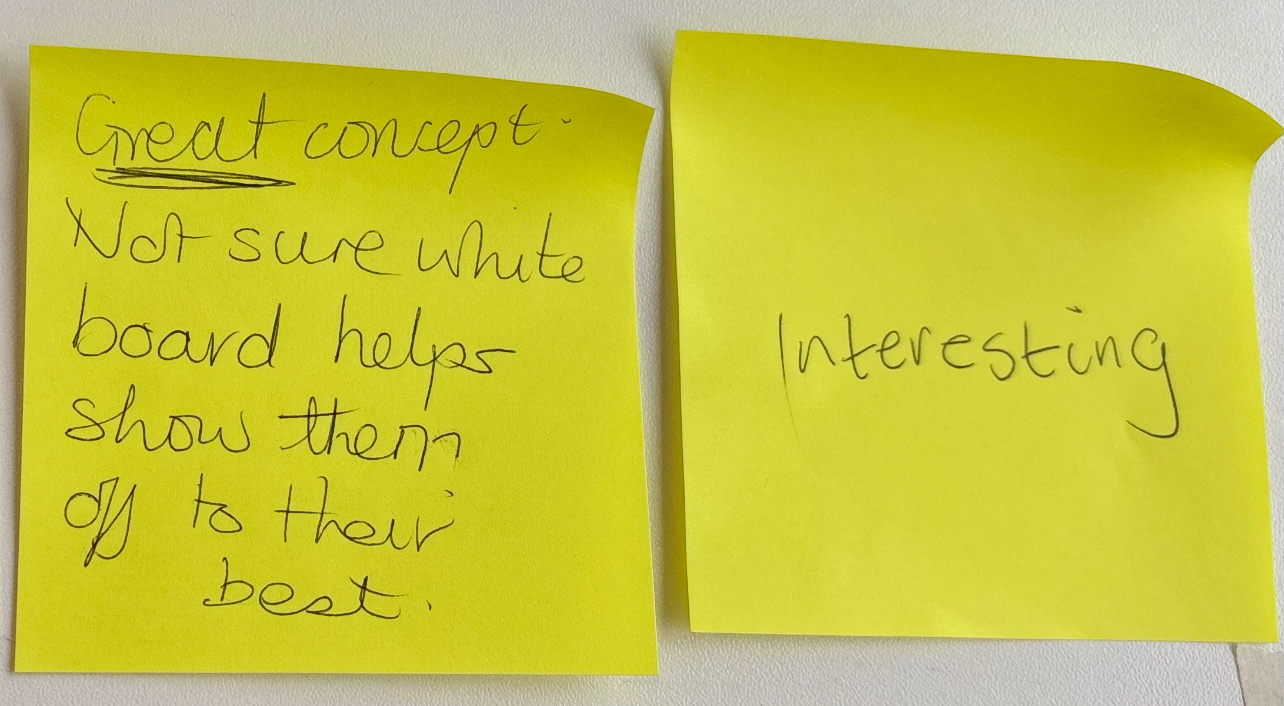 Great concept.
Not sure white
board helps
show them
off to their
best.
Interesting